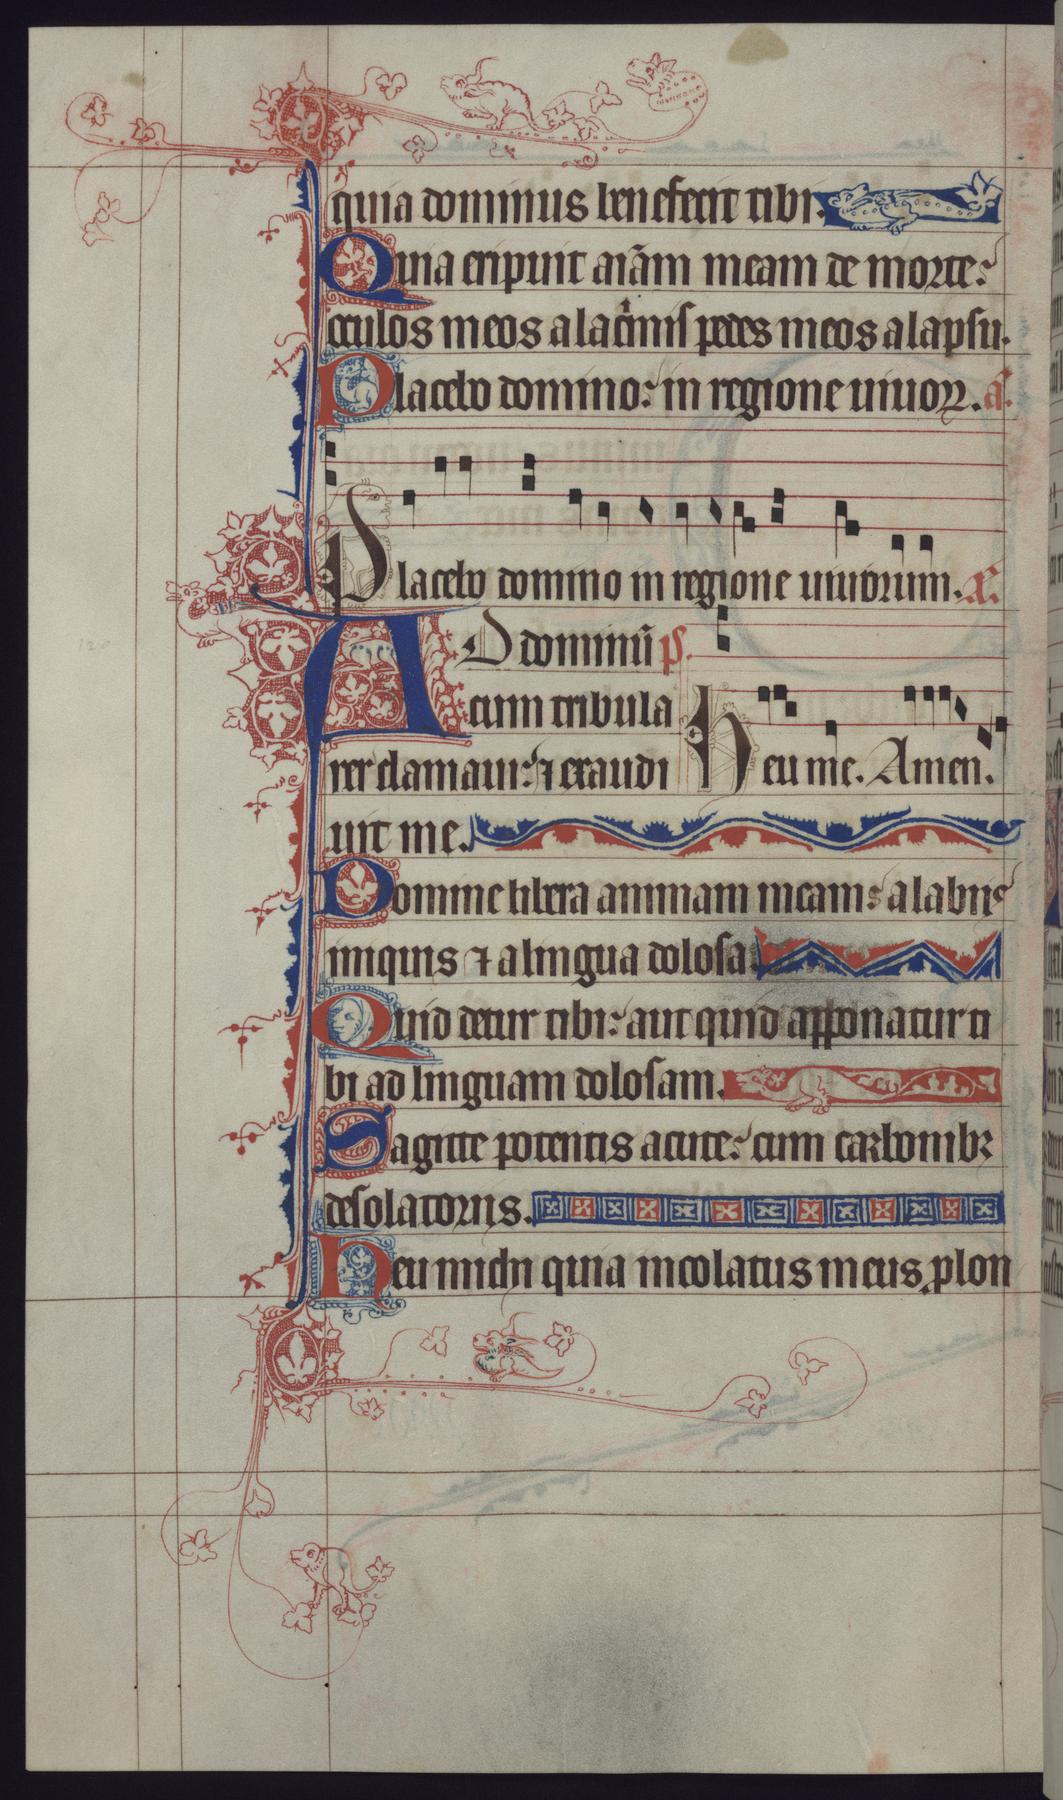 quia dominus benefecit tibi.
Quia eripuit aīam meam de morte:
oculos meos a lac̄mis pedes meos a lapsu.
Placebo domino: in regione uiuoꝝ. a͞.
Placebo domino in regione uiuorum.
AD dominū p̄s.
cum tribula
rer clamaui: ⁊ exaudi
Heu me. Amen.
uit me.
Domine libera animam meam: a labiis
iniquis ⁊ a lingua dolosa.
Quid detur tibi: aut quid apponatur ti
bi ad linguam dolosam.
Sagitte potentis acute: cum carbonibꝫ
desolatoriis.
Heu michi quia incolatus meus ꝓlon
120